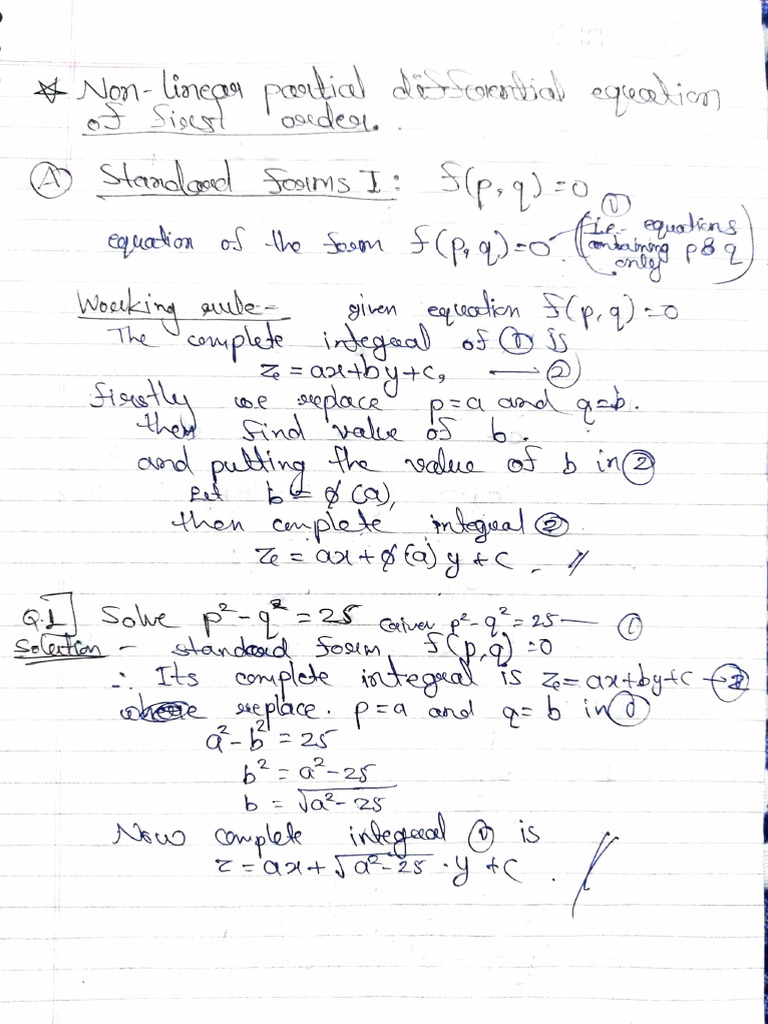 * Non-linear partial differential equation
of first order.
Ⓐ Standard forms I: f(p, q) = 0
equation of the form f(p, q) = 0 — ① (i.e. equations containing p & q only)
Working rule - given equation f(p, q) = 0
The complete integral of ① is
z = ax + by + c, — ②
firstly we replace p = a and q = b.
then find value of b.
and putting the value of b in ②
let b = ϕ(a),
then complete integral ②
z = ax + ϕ(a) y + c . //
Q.1] Solve p² - q² = 25 Given p² - q² = 25 — ①
Solution - standard form f(p, q) = 0
∴ Its complete integral is z = ax + by + c — ②
replace. p = a and q = b in ①
a² - b² = 25
b² = a² - 25
b = √(a² - 25)
Now complete integral ① is
z = ax + √(a² - 25) · y + c . //